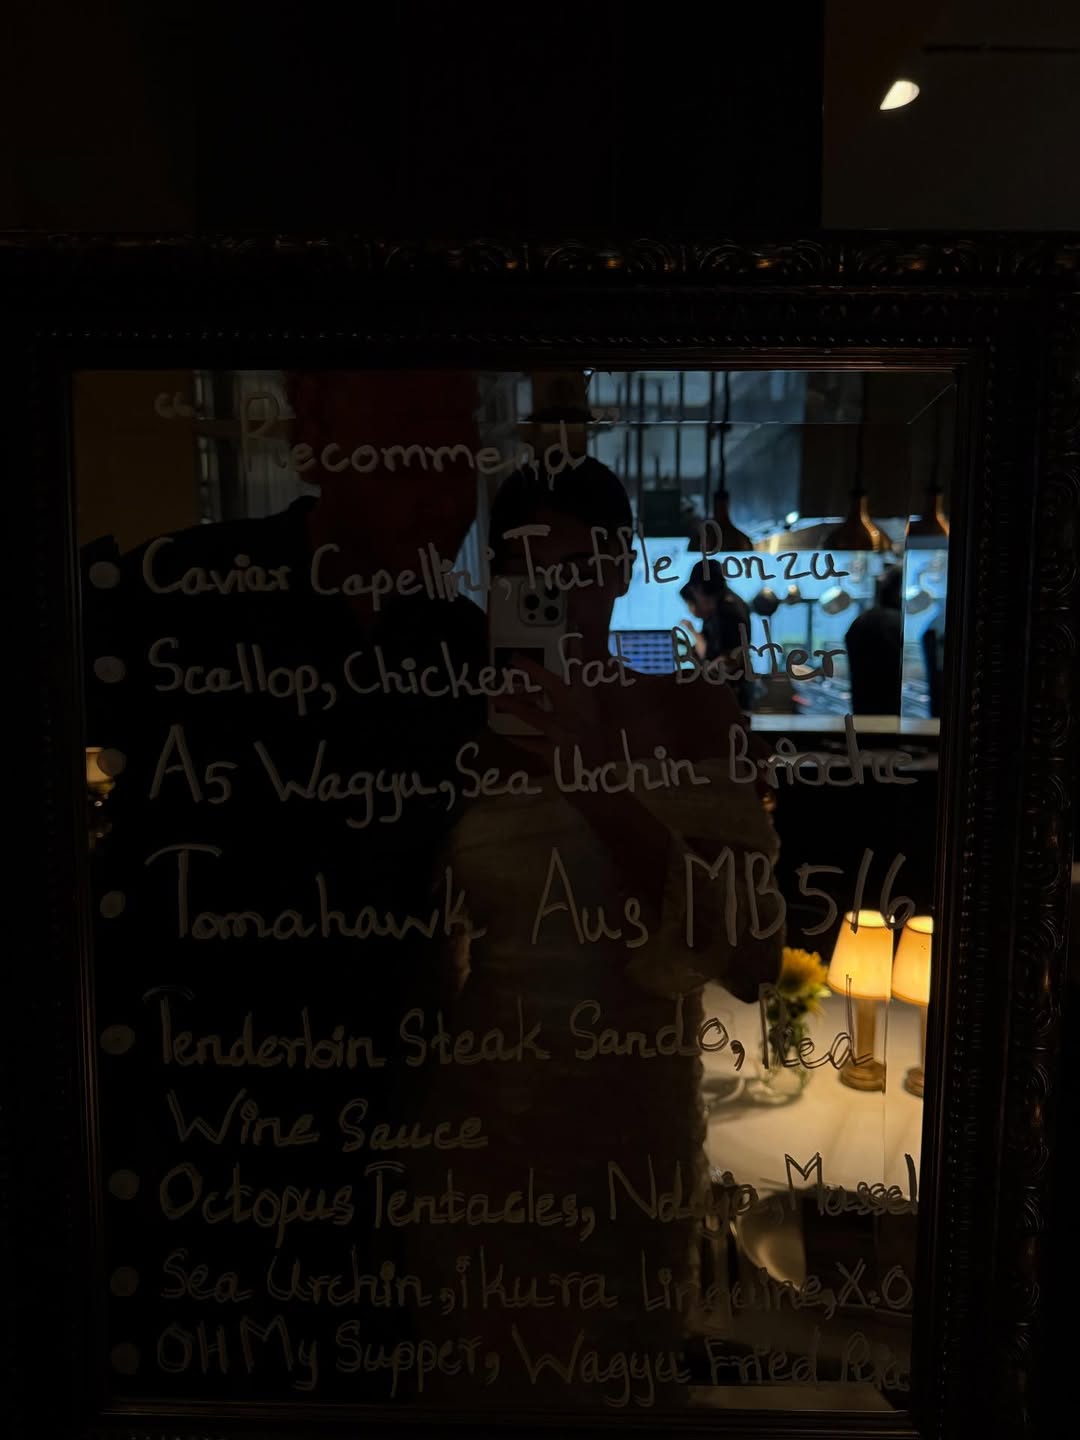 "Recommend"
• Caviar Capellini, Truffle Ponzu
• Scallop, Chicken Fat Butter
• A5 Wagyu, Sea Urchin Brioche
• Tomahawk Aus MB5/6
• Tenderloin Steak Sando, Red
Wine Sauce
• Octopus Tentacles, Nduja, Mussel
• Sea Urchin, ikura Linguine, X.O
• OH My Supper, Wagyu Fried Rice